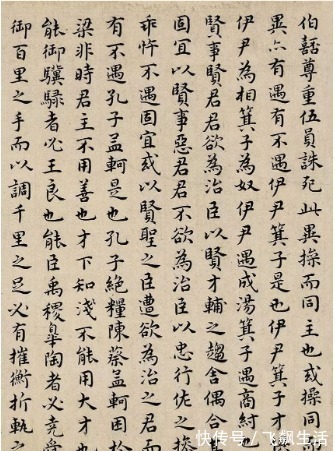 伯嚭尊重伍員誅死此異操而同主也或操同
異亦有遇有不遇伊尹箕子是也伊尹箕子才
伊尹為相箕子為奴伊尹遇成湯箕子遇商紂也
賢事賢君君欲為治臣以賢才輔之趨舍偶合
固宜以賢事惡君君不欲為治臣以忠行佐之操
乖忤不遇固宜或以賢聖之臣遭欲為治之君而
有不遇孔子孟軻是也孔子絕糧陳蔡孟軻困於
梁非時君主不用善也才下知淺不能用大才也
能御驥騄者必王良也能臣禹稷皋陶者必堯
御百里之手而以調千里之足必有摧衡折軛之
快传号/飞飘生活